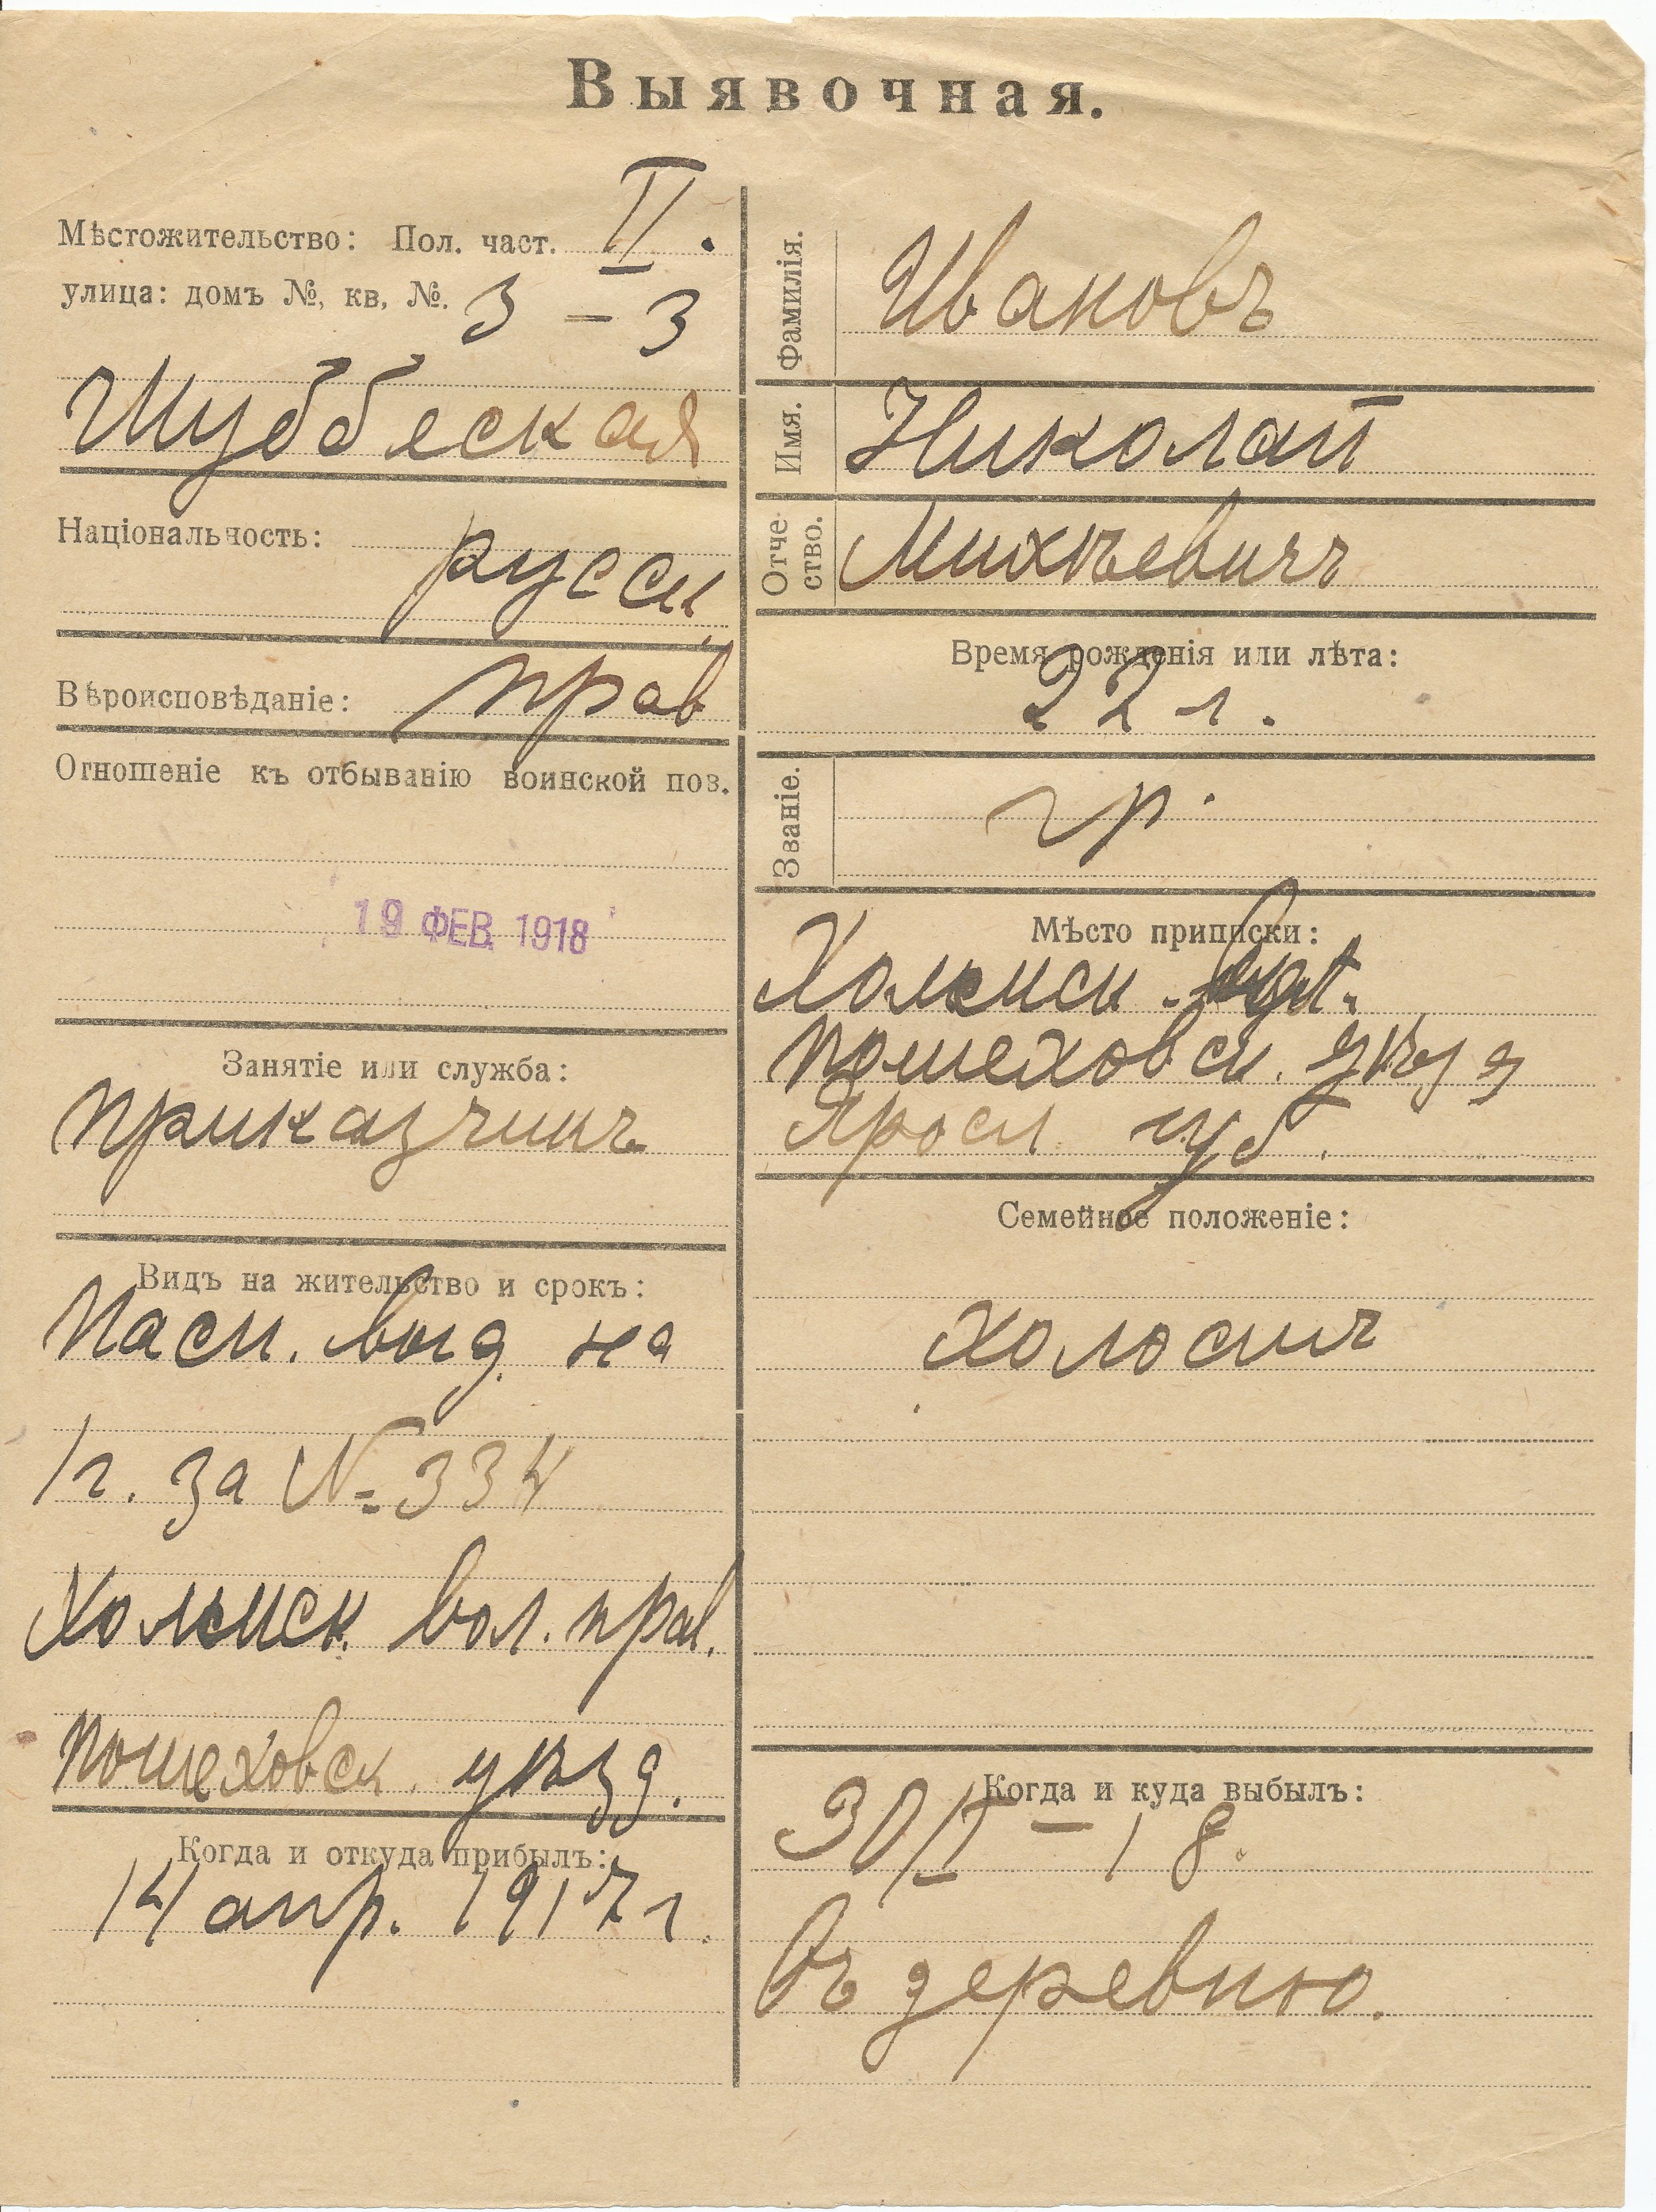 Выявочная.
Мѣстожительство: Пол. част. II.
улица: домъ №, кв, №. 3 – 3
Національность: русск.
Вѣроисповѣданіе: прав
Отношеніе къ отбыванію воинской пов.
19 ФЕВ. 1918
Занятіе или служба:
приказчикъ
Видъ на жительство и срокъ:
Пасп. выд. на
1 г. за № 334
Холмск. вол. прав.
Пошеховск. уѣзд.
Когда и откуда прибылъ:
14 апр. 1917 г.
Фамилія. Ивановъ
Имя. Николай
Отчество. Михѣевичъ
Время рожденія или лѣта:
22 л.
Званіе. гр.
Мѣсто приписки:
Холмск.
Пошеховск. уѣзд
Яросл. губ.
Семейное положеніе:
холостъ
Когда и куда выбылъ:
30/I – 18.
Въ деревню.